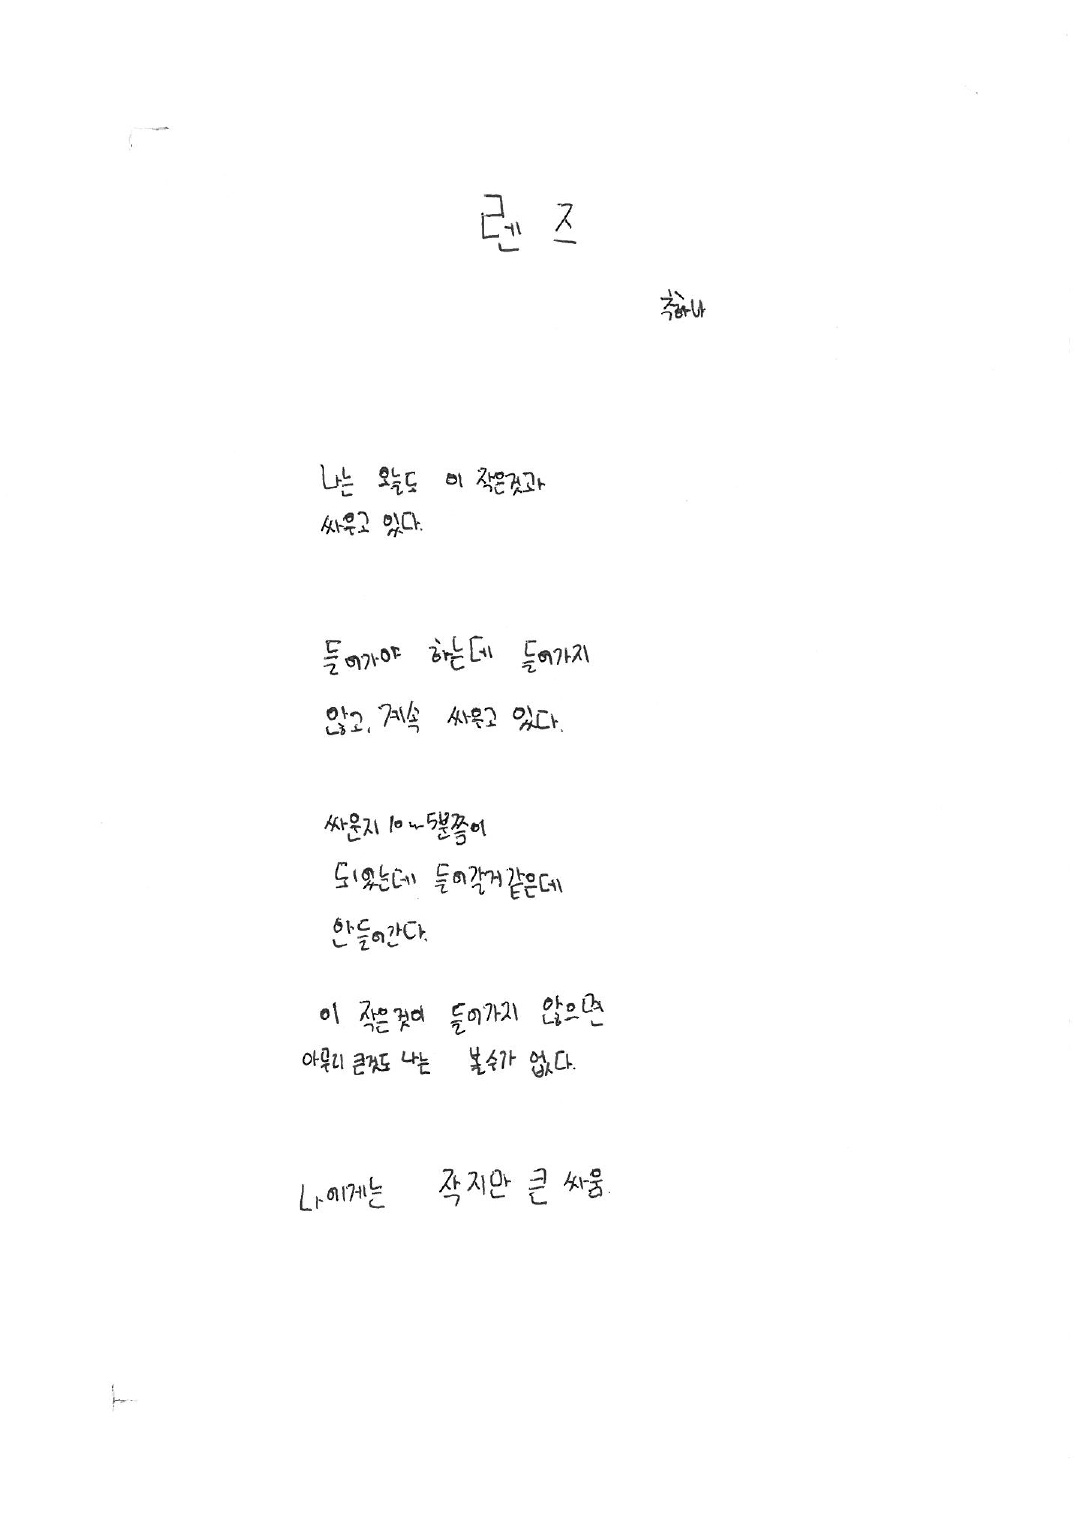 렌즈
추하나
나는 오늘도 이 작은것과
싸우고 있다.
들어가야 하는데 들어가지
않고, 계속 싸우고 있다.
싸운지 10~5분쯤이
되었는데 들어갈거같은데
안들어간다.
이 작은것이 들어가지 않으면
아무리 큰것도 나는 볼수가 없다.
나에게는 작지만 큰 싸움.